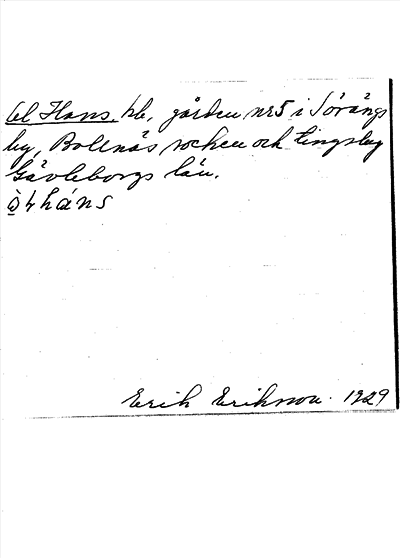 Hans, hb, gården nr5 i Sörängs
by, Bollnäs socken och tingslag
Gävleborgs län.
Erik Eriksson. 1929